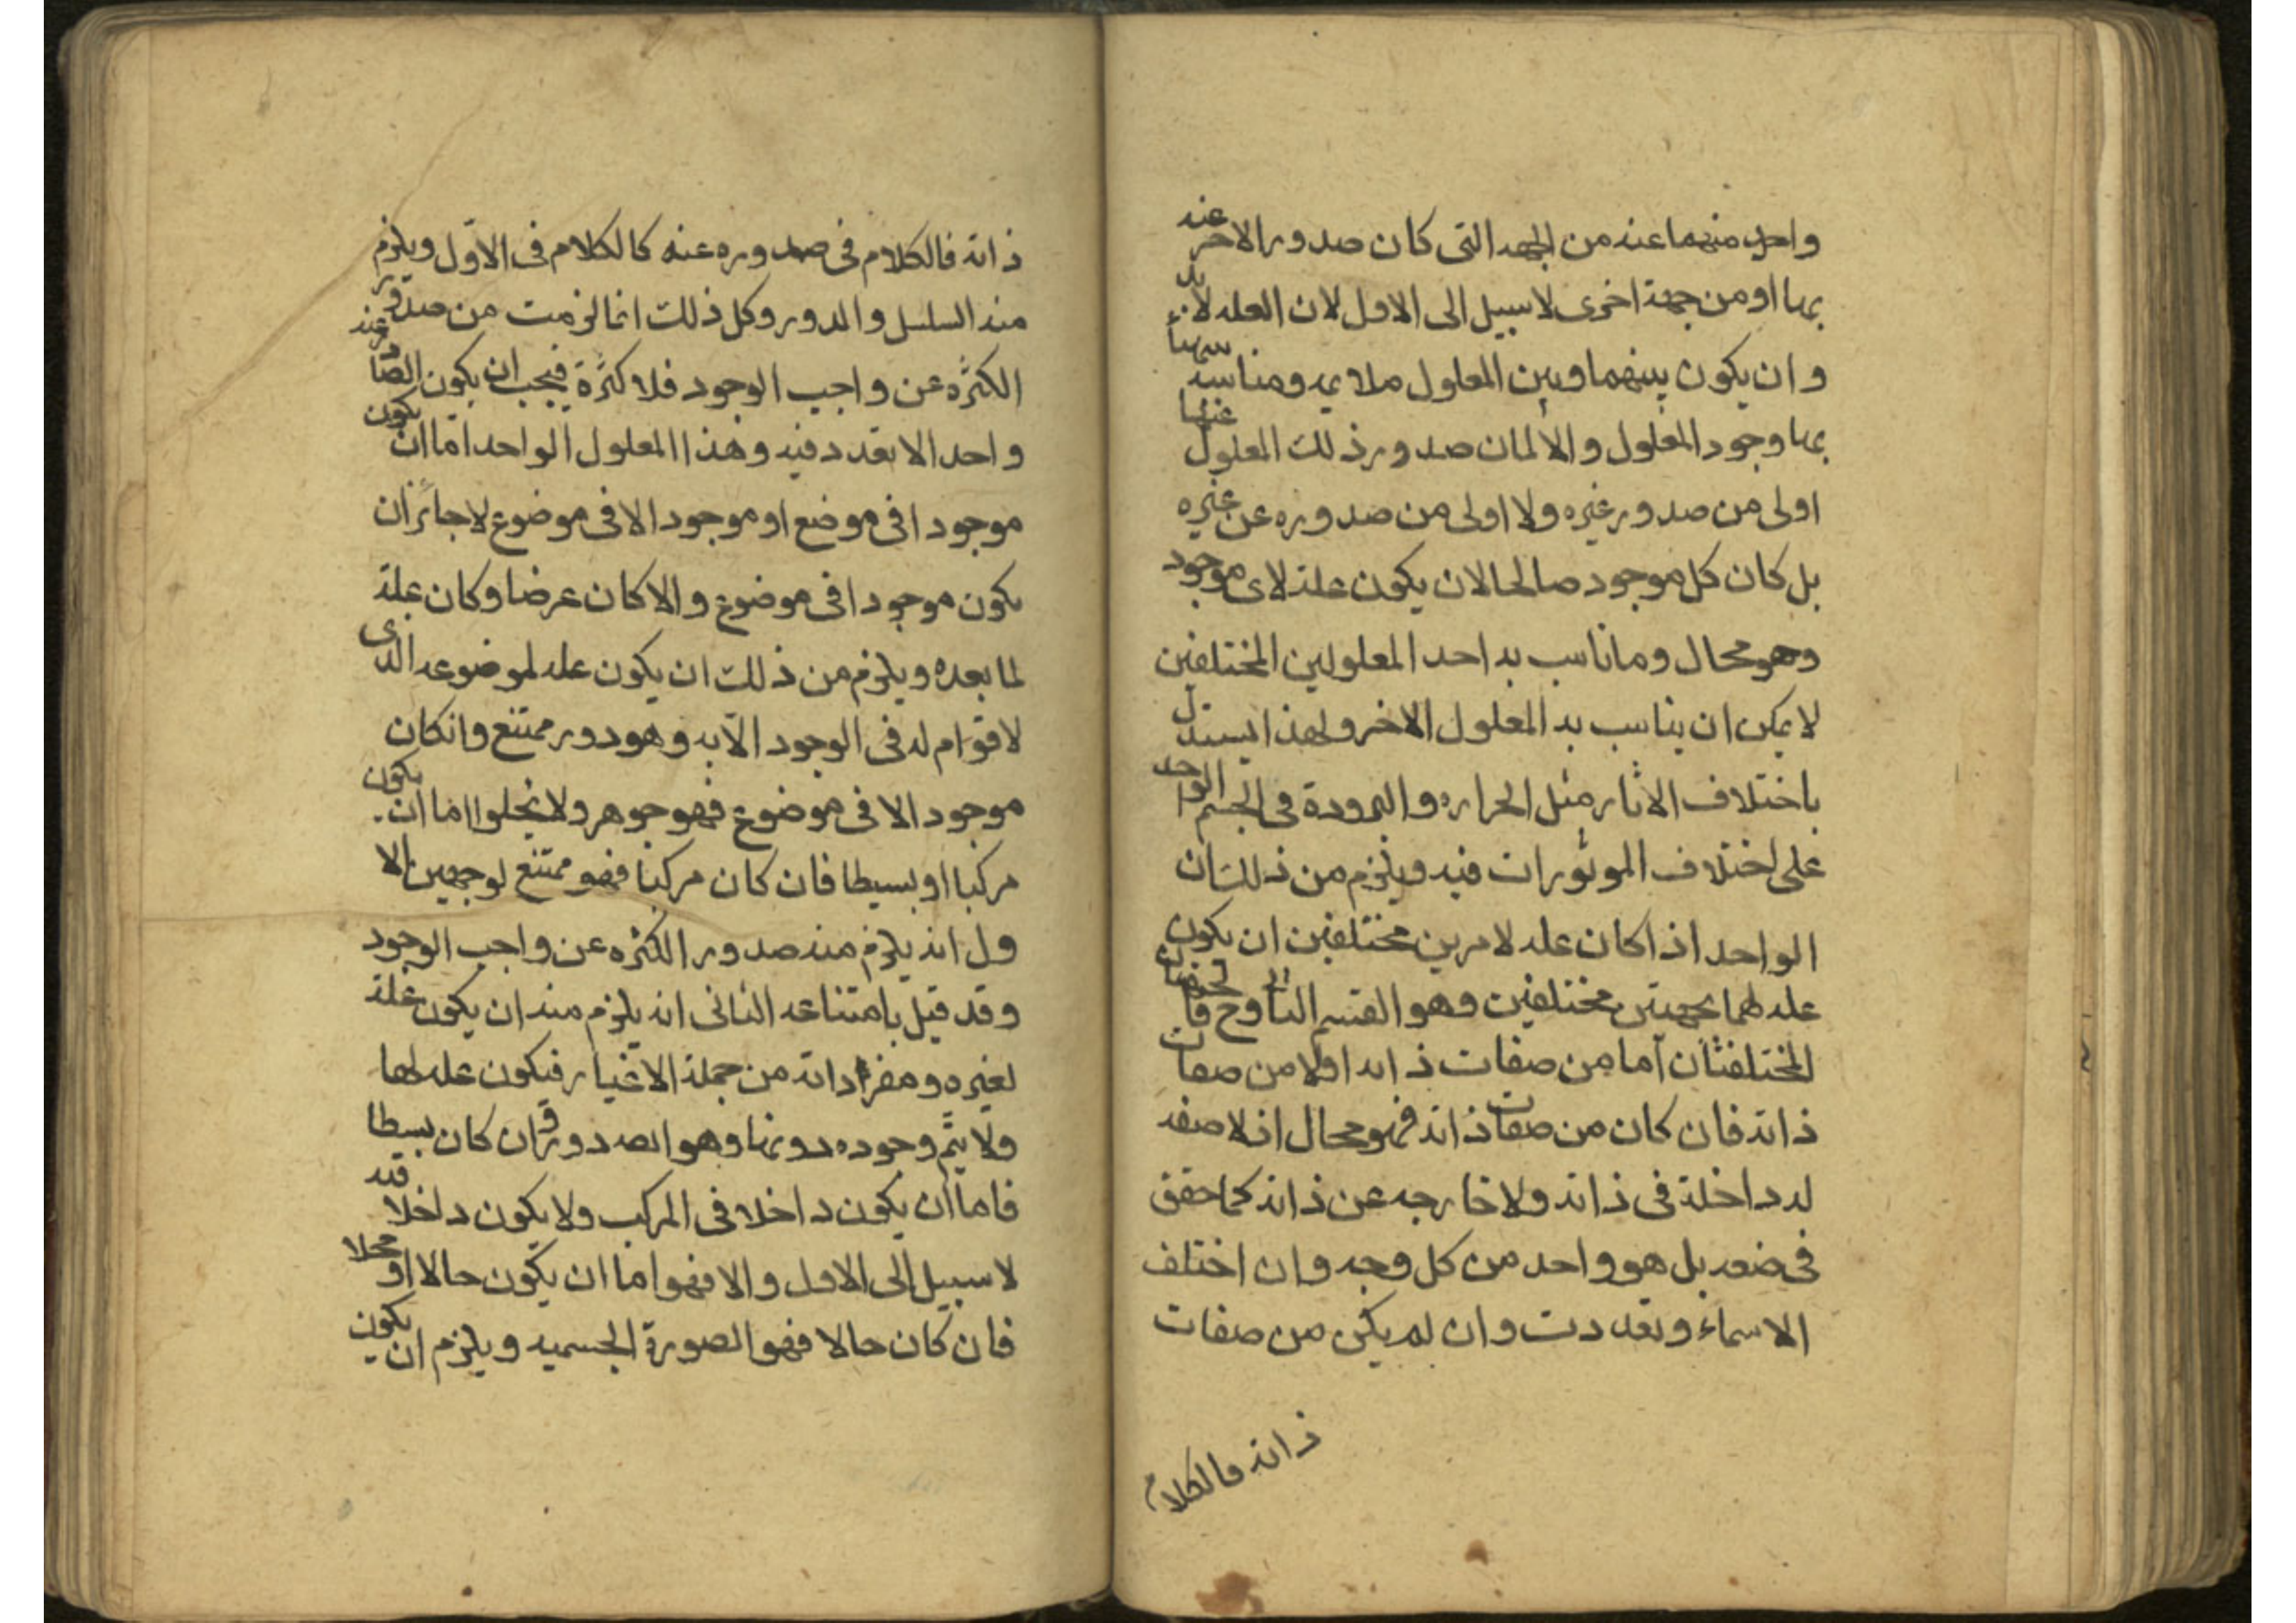 واحد منهما عنه من الجهه التى كان صدور الاخر عنه
بها او من جهة اخرى لا سبيل الى الاول لان العله لا بد
وان يكون بينهما وبين المعلول ملايمه ومناسبه
بها وجود المعلول والا لما كان صدور ذلك المعلول عنها
اولى من صدور غيره ولا اولى من صدوره عن غيره
بل كان كل موجود صالحا لان يكون علة لاى موجود
وهو محال وما ناسب به احد المعلولين المختلفين
لا يمكن ان يناسب به المعلول الاخر ولهذا يستدل
باختلاف الاثار مثل الحراره والبرودة فى الجسم الواحد
على اختلاف الموثورات فيه ويلزم من ذلك ان
الواحد اذا كان عله لامرين مختلفين ان يكون
عله لهما بجهتين مختلفين وهو القسم الثانى وح فا
المختلفتان اما من صفات ذاته اولا من صفات
ذاته فان كان من صفات ذاته فهو محال اذ لا صفه
له داخلة فى ذاته ولا خارجه عن ذاته كما حقق
فى ضعه بل هو واحد من كل وجه وان اختلف
الاسماء وتعددت وان لم يكن من صفات
ذاته فالكلام
ذاته فالكلام فى صدوره عنه كالكلام فى الاوّل ويلزم
منه السلسل والدور وكل ذلك انما لزمت من صدور
الكثرة عن واجب الوجود فلا كثرة فيجب ان يكون الصادر عنه
واحدا لا تعدد فيه وهذا المعلول الواحد امّا ان يكون
موجودا فى موضع او موجودا لا فى موضوع لا جائز ان
يكون موجودا فى موضوع والا كان عرضا وكان علة
لما بعده ويلزم من ذلك ان يكون عله لموضوعه الذى
لا قوام له فى الوجود الّا به وهو دور ممتنع وانكان
موجودا لا فى موضوع فهو جوهر ولا يخلوا اما ان يكون
مركبا او بسيطا فان كان مركبا فهو ممتنع لوجهين الا
ول انه يلزم منه صدور الكثره عن واجب الوجود
وقد قيل بامتناعه الثانى انه يلزم منه ان يكون علة
لغيره ومفردا ذاته من جملة الاغيار فيكون عله لها
ولا يتم وجوده دونها وهو الصدور وان كان بسيطا
فاما ان يكون داخلا فى المركب ولا يكون داخلا فيه
لا سبيل الى الاول والا فهو اما ان يكون حالا او محلا
فان كان حالا فهو الصورة الجسميه ويلزم ان يكون